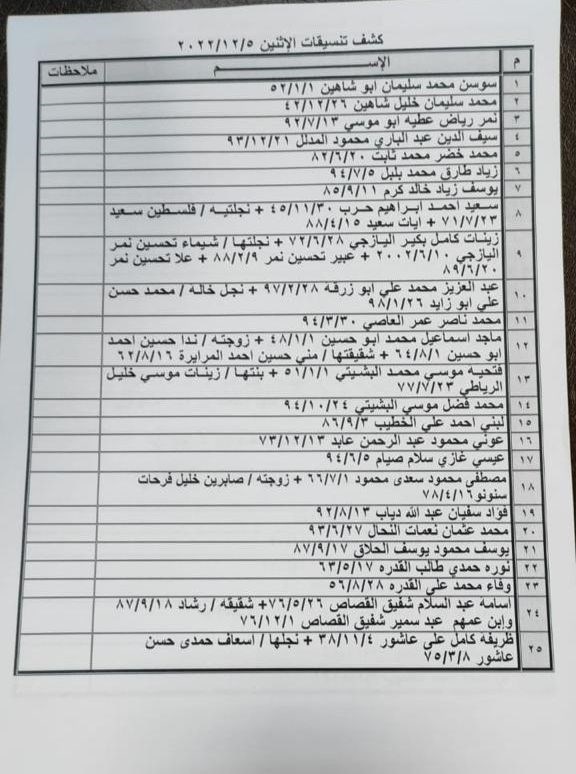 كشف تنسيقات الإثنين ٢٠٢٢/١٢/٥
م الإســـــم ملاحظات
١ سوسن محمد سليمان ابو شاهين ٥٢/١/١
٢ محمد سليمان خليل شاهين ٤٢/١٢/٢٦
٣ نمر رياض عطيه ابو موسي ٩٢/٧/١٣
٤ سيف الدين عبد الباري محمود المدلل ٩٣/١٢/٢١
٥ محمد خضر محمد ثابت ٨٢/٦/٢٠
٦ زياد طارق محمد بلبل ٩٤/٧/٥
٧ يوسف زياد خالد كرم ٨٥/٩/١١
٨ سعيد احمد ابراهيم حرب ٤٥/١١/٣٠ + نجلتيه / فلسطين سعيد
٧١/٧/٢٣ + ايات سعيد ٨٨/٤/١٥
٩ زينات كامل بكير اليازجي ٧٢/٦/٢٨ + نجلتها / شيماء تحسين نمر
اليازجي ٢٠٠٢/٦/١٠ + عبير تحسين نمر ٨٨/٢/٩ + علا تحسين نمر
٨٩/٦/٢٠
١٠ عبد العزيز محمد علي ابو زرقة ٩٧/٢/٢٨ + نجل خالة / محمد حسن
علي ابو زايد ٩٨/١/٢٦
١١ محمد ناصر عمر العاصي ٩٤/٣/٣٠
١٢ ماجد اسماعيل محمد ابو حسين ٤٨/١/١ + زوجته / ندا حسين احمد
ابو حسين ٦٤/٨/١ + شقيقتها / مني حسين احمد المرايرة ٦٢/٨/١٦
١٣ فتحيه موسي محمد البشيتي ٥١/١/١ + بنتها / زينات موسي خليل
الرياطي ٧٧/٧/٢٣
١٤ محمد فضل موسي البشيتي ٩٤/١٠/٢٤
١٥ لبني احمد علي الخطيب ٨٦/٩/٣
١٦ عوني محمود عبد الرحمن عابد ٧٣/١٢/١٣
١٧ عيسي غازي سلام صيام ٩٤/٦/٥
١٨ مصطفى محمود سعدى محمود ٦٦/٧/١ + زوجته / صابرين خليل فرحات
سنونو ٧٨/٤/١٦
١٩ فؤاد سفيان عبد الله دياب ٩٢/٨/١٣
٢٠ محمد عثمان نعمات النحال ٩٣/٦/٢٧
٢١ يوسف محمود يوسف الحلاق ٨٧/٩/١٧
٢٢ نوره حمدي طالب القدره ٦٣/٥/١٧
٢٣ وفاء محمد علي القدره ٥٦/٨/٢٨
٢٤ اسامه عبد السلام شفيق القصاص ٧٦/٥/٢٦+ شقيقه / رشاد ٨٧/٩/١٨
وابن عمهم عبد سمير شفيق القصاص ٧٦/١٢/١
٢٥ ظريفه كامل علي عاشور ٣٨/١١/٤ + نجلها / اسعاف حمدى حسن
عاشور ٧٥/٣/٨